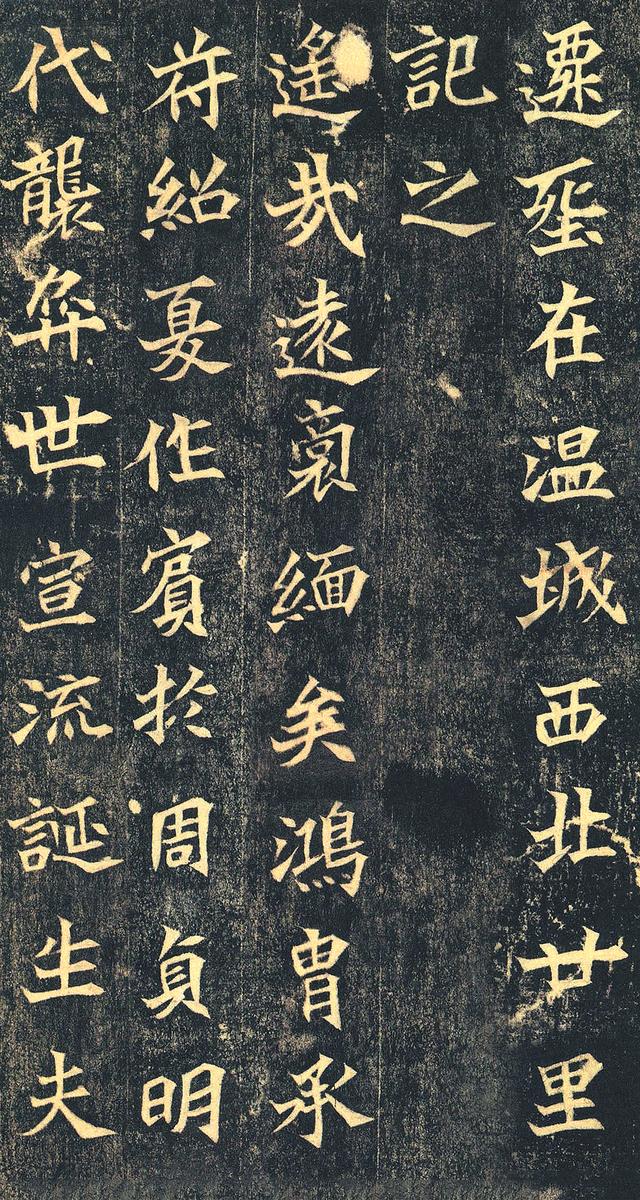 遷塟在温城西北廿里
記之
遙哉遠裔緬矣鴻冑承
苻紹夏作賓於周貞明
代襲弈世宣流誕生夫